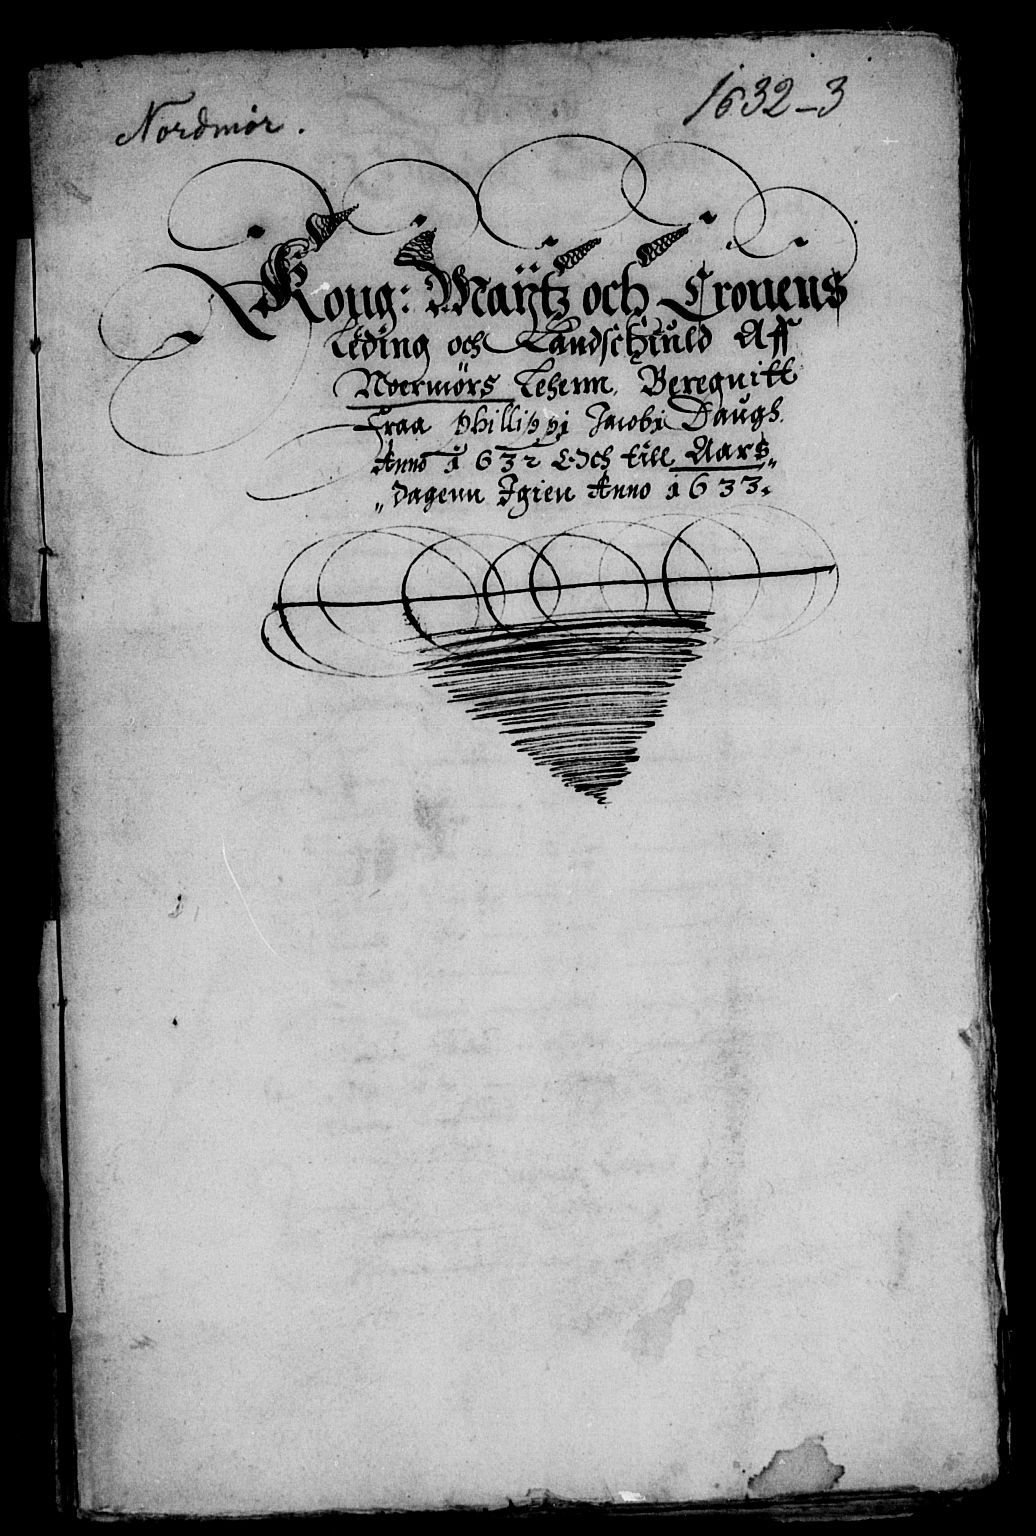 Nordmör.
1632-3
Kong: Maÿtz och Cronens
Leding och Landschÿuld Aff
Noermörs Lehenn, Beregnitt
fraa Phillippi Jacobi Daugh
Anno 1632 Och till Aars„
„dagenn Igien Anno 1633.